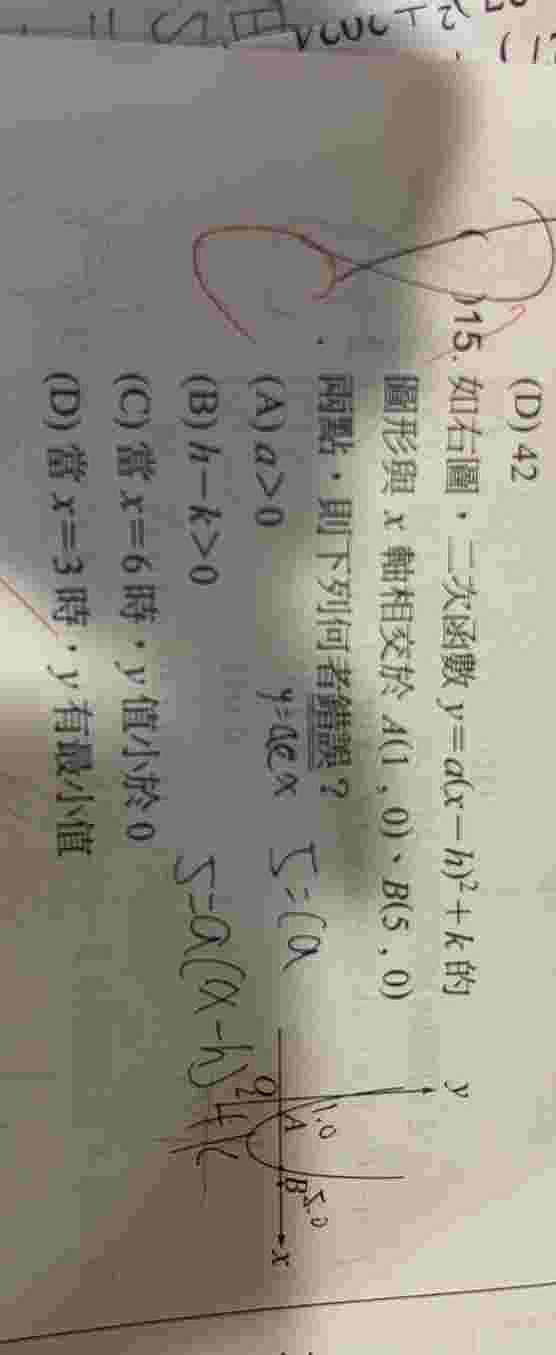 (D) 42
15. 如右圖，二次函數 y=a(x−h)²+k 的
圖形與 x 軸相交於 A(1 , 0)、B(5 , 0)
兩點，則下列何者錯誤？
(A) a>0
(B) h−k>0
(C) 當 x=6 時，y 值小於 0
(D) 當 x=3 時，y 有最小值
y
1.0
O A B 5.0
x
5=(a
5=a(x-h)